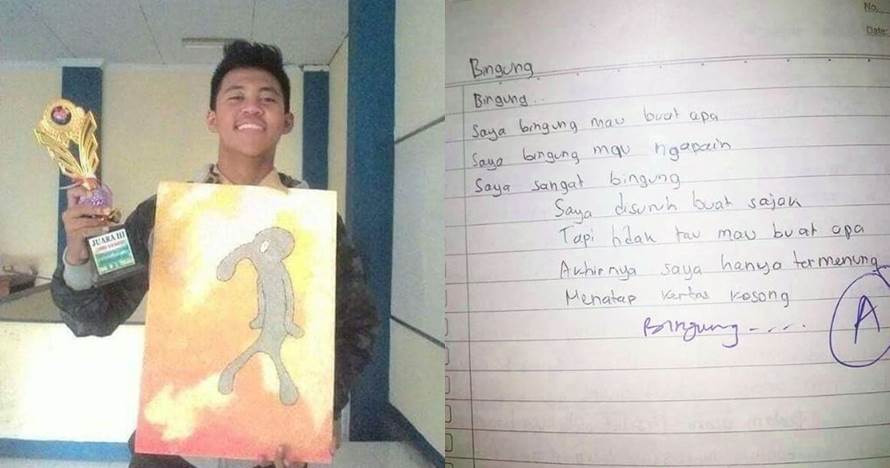 JUARA III
No.
Date:
Bingung
Bingung..
Saya bingung mau buat apa
Saya bingung mau ngapain
Saya sangat bingung
Saya disuruh buat sajak
Tapi tidak tau mau buat apa
Akhirnya saya hanya termenung
Menatap kertas kosong
Bingung.....
A